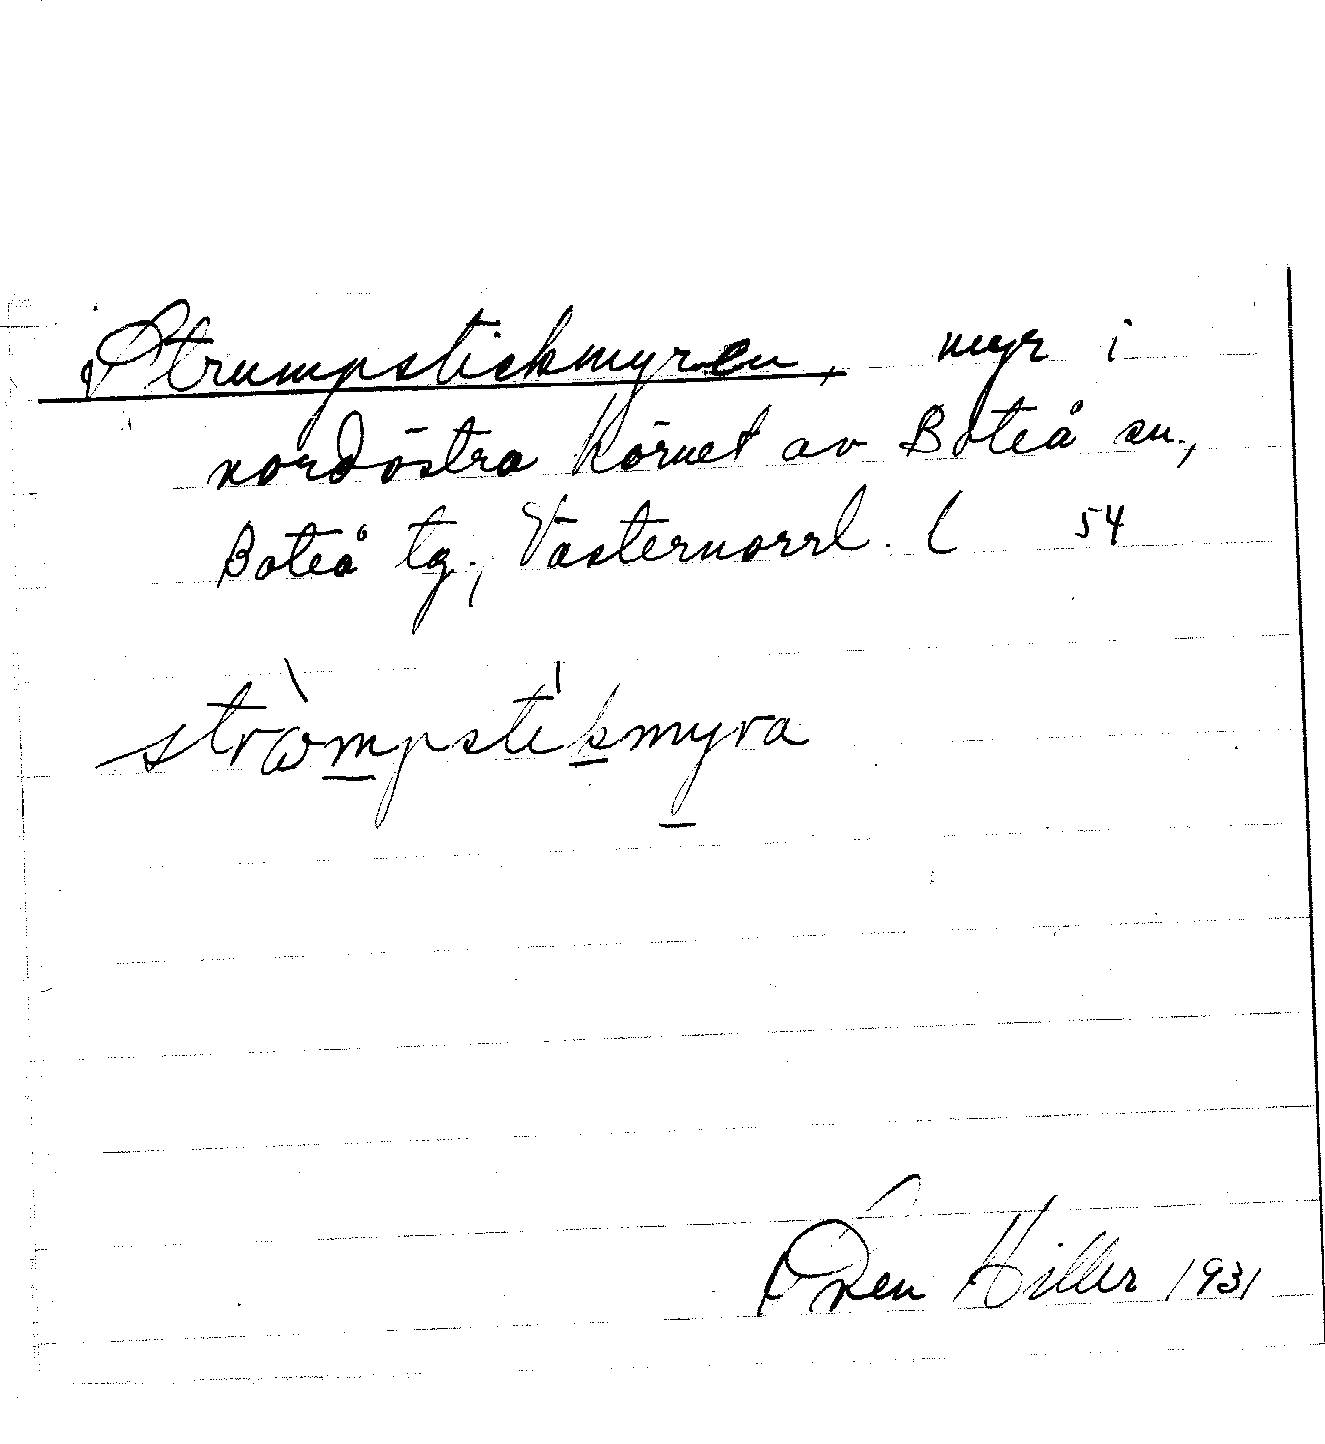 Strumpstickmyren, myr i
nordöstra hörnet av Boteå sn.,
Boteå tg., Västernorrl. l 54
strɷ̀mpstìkmyra
Hiller 1931